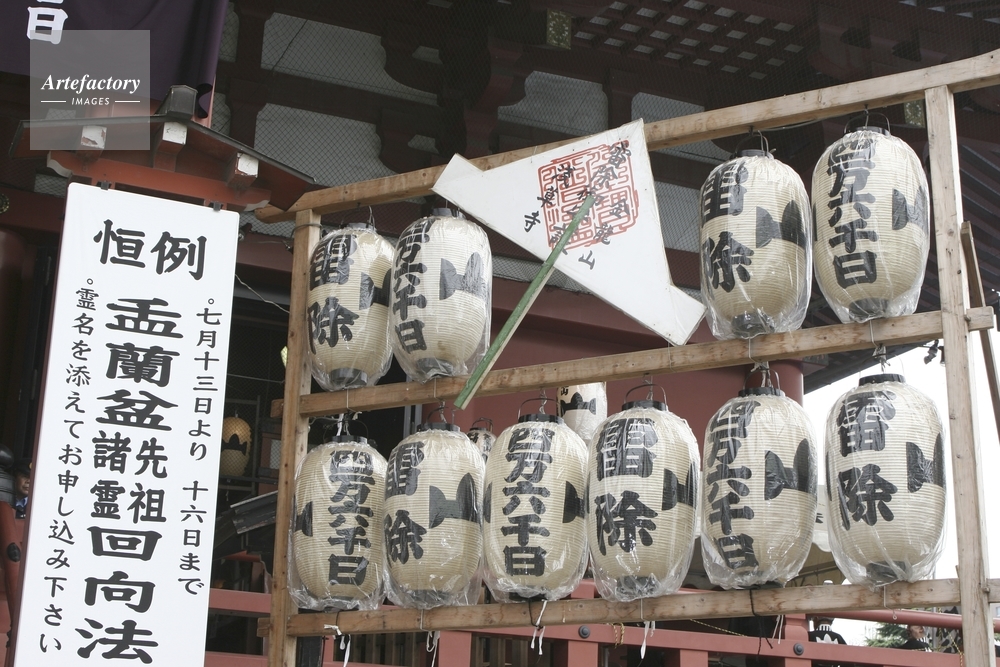 Artefactory
IMAGES
恒例
。七月十三日より 十六日まで
盂蘭盆
先祖
諸霊
回向法
。霊名を添えてお申し込み下さい
雷除
四万六千日
雷除
四万六千日
四万六千日
雷除
四万六千日
雷除
四万六千日
雷除